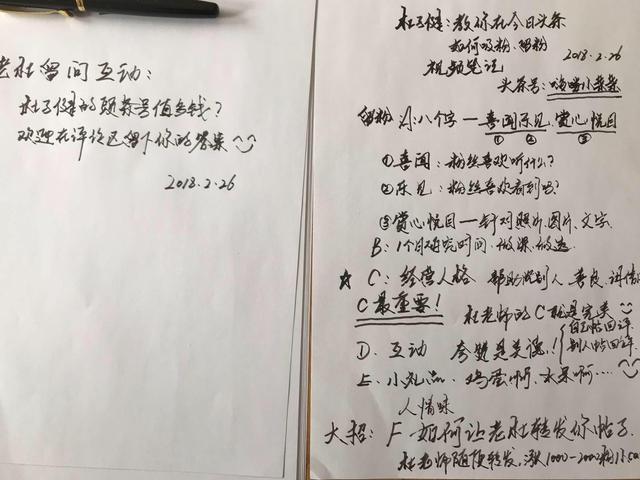 老杜留问互动:
杜子健的头条号值多钱?
欢迎在评论区留下你的答案
2018.2.26
杜子健:教你在今日头条
如何吸粉、留粉
视频笔记 2018.2.26
头条号:嗨嗨小条条
留粉 八个字一喜闻乐见、赏心悦目
① ② ③
①喜闻:粉丝喜欢听什么?
②乐见:粉丝喜欢看到
③赏心悦目一针对照片、图片、文字
B:1个月研究时间、做课、做选
☆ C:经营人格 帮助别人 善良、调情
C最重要! 杜老师的C就是完美
D、互动 夸赞是美德! 自己帖回评
别人帖回评
E、小礼品、鸡蛋啊、水果啊……
人情味
大招:F 如何让老杜转发你帖子
杜老师随便转发,涨1000-2000粉